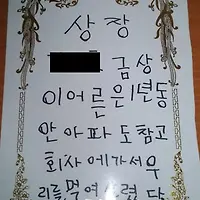 상장
금상
이어른은1년동
안아파도참고
회사에가서우
리를먹여살렸답